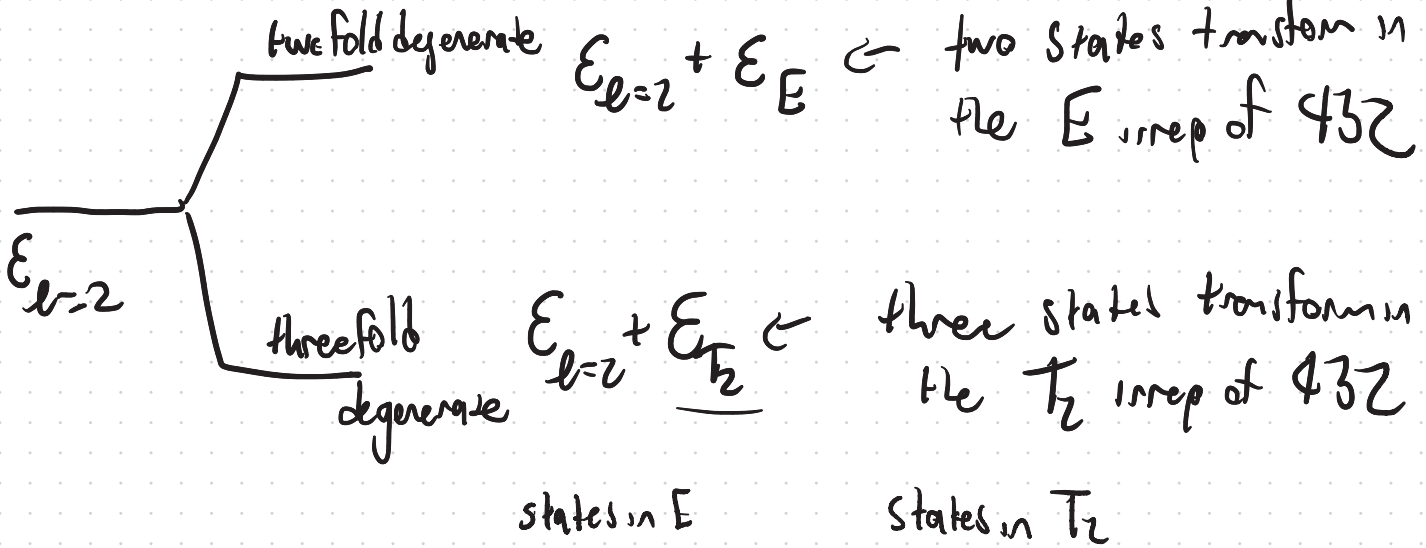 twofold degenerate ε_{l=2} + ε_E ← two states transform in
the E irrep of 432
ε_{l=2}
threefold
degenerate ε_{l=2} + ε_{T_2} ← three states transform in
the T_2 irrep of 432
states in E states in T_2